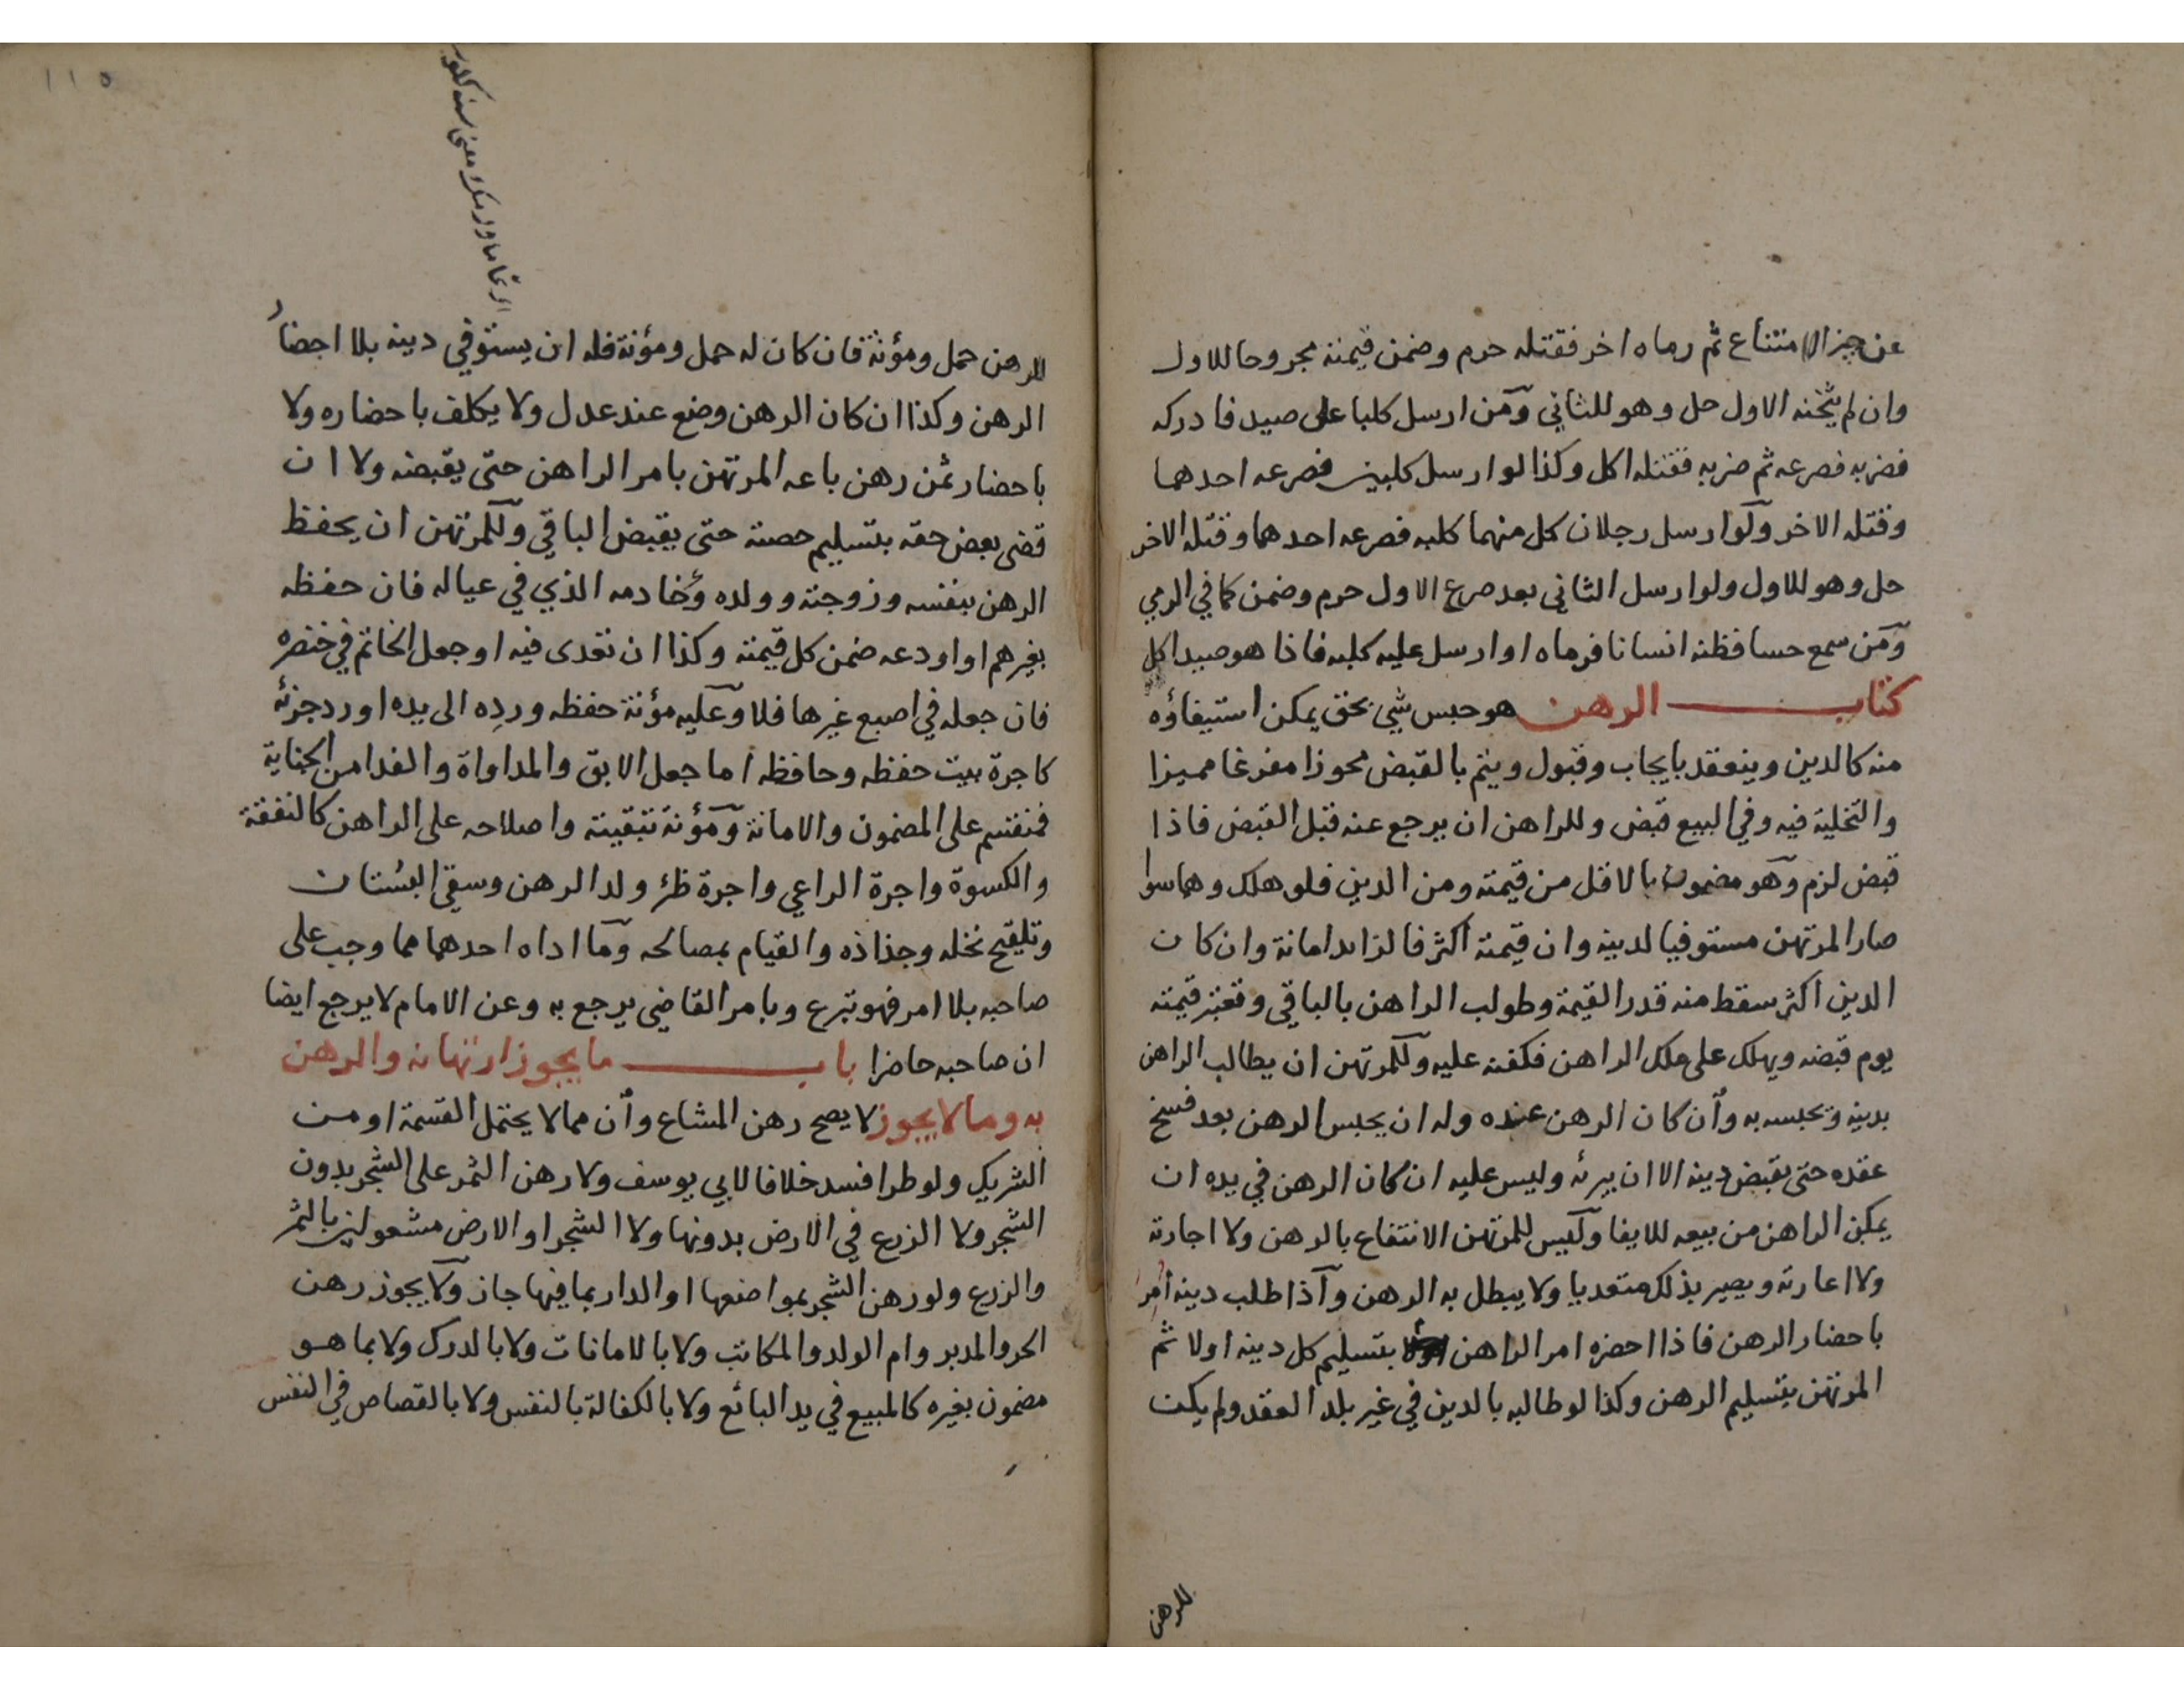 عن حيز الامتناع ثم رماه اخر فقتله حرم وضمن قيمته مجروحا للاول
وان لم يثخنه الاول حل وهو للثاني ومن ارسل كلبا على صيد فادركه
فضربه فصرعه ثم ضربه فقتله اكل وكذا لو ارسل كلبين فصرعه احدهما
وقتله الاخر ولو ارسل رجلان كل منهما كلبه فصرعه احدهما وقتله الاخر
حل وهو للاول ولو ارسل الثاني بعد صرع الاول حرم وضمن كما في الرمي
ومن سمع حسا فظنه انسانا فرماه او ارسل عليه كلبه فاذا هو صيد اكل
كتاب الرهن هو حبس شي بحق يمكن استيفاؤه
منه كالدين وينعقد بايجاب وقبول ويتم بالقبض محوزا مفرغا مميزا
والتخلية فيه وفي البيع قبض وللراهن ان يرجع عنه قبل القبض فاذا
قبض لزم وهو مضمون بالاقل من قيمته ومن الدين فلو هلك وهما سوا
صار المرتهن مستوفيا لدينه وان قيمته اكثر فالزايد امانة وان كان
الدين اكثر سقط منه قدر القيمة وطولب الراهن بالباقي وتعتبر قيمته
يوم قبضه ويهلك على ملك الراهن فكفنه عليه وللمرتهن ان يطالب الراهن
بدينه وتحبسه به وان كان الرهن عنده وله ان يحبس الرهن بعد فسخ
عقده حتى يقبض دينه الا ان يبرئه وليس عليه ان كان الرهن في يده ان
يمكن الراهن من بيعه للايفا وليس للمرتهن الانتفاع بالرهن ولا اجارته
ولا اعارته ويصير بذلك متعديا ولا يبطل به الرهن واذا طلب دينه امر
باحضار الرهن فاذا احضره امر الراهن بتسليم كل دينه اولا ثم
المرتهن بتسليم الرهن وكذا لو طالبه بالدين في غير بلد العقد ولم يكن
للرهن
١١٥
للرهن حمل ومؤنة فان كان له حمل ومؤنة فله ان يستوفي دينه بلا احضار
الرهن وكذا ان كان الرهن وضع عند عدل ولا يكلف باحضاره ولا
باحضار ثمن رهن باعه المرتهن بامر الراهن حتى يقبضه ولا ان
قضى بعض حقه بتسليم حصته حتى يقبض الباقي وللمرتهن ان يحفظ
الرهن بنفسه وزوجته وولده وخادمه الذي في عياله فان حفظه
بغيرهم او اودعه ضمن كل قيمته وكذا ان تعدى فيه او جعل الخاتم في خنصره
فان جعله في اصبع غيرها فلا وعليه مؤنة حفظه ورده الى يده او رد جزئه
كاجرة بيت حفظه وحافظه اما جعل الابق والمداواة والفدا من الجناية
فمنقسم على المضمون والامانة ومؤنة تبقيته واصلاحه على الراهن كالنفقة
والكسوة واجرة الراعي واجرة ظئر ولد الرهن وسقي البستان
وتلقيح نخله وجذاذه والقيام بمصالحه وما اداه احدهما مما وجب على
صاحبه بلا امر فهو تبرع وبامر القاضي يرجع به وعن الامام لا يرجع ايضا
ان صاحبه حاضرا باب ما يجوز ارتهانه والرهن
به وما لا يجوز لا يصح رهن المشاع وان مما لا يحتمل القسمة او من
الشريك ولو طرا فسد خلافا لابي يوسف ولا رهن الثمر على الشجر بدون
الشجر ولا الزرع في الارض بدونها ولا الشجر او الارض مشعولين بالثمر
والزرع ولو رهن الشجر بمواضعها او الدار بما فيها جاز ولا يجوز رهن
الحر والمدبر وام الولد والمكاتب ولا بالامانات ولا بالدرك ولا بما هو
مضمون بغيره كالمبيع في يد البائع ولا بالكفالة بالنفس ولا بالقصاص في النفس